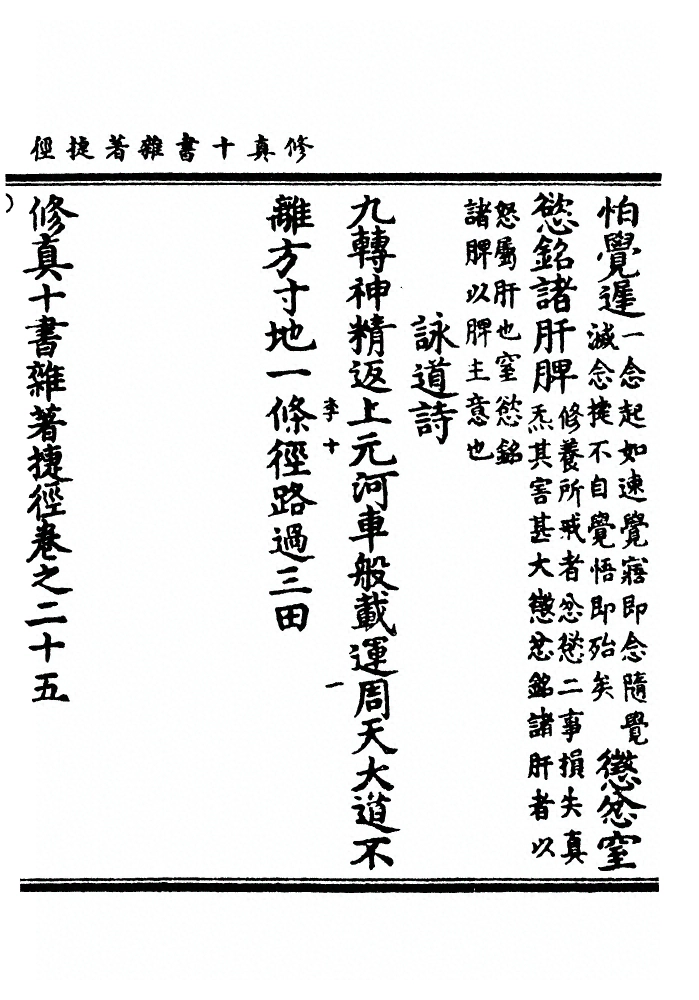 修真十書雜著捷徑
怕覺遲
一念起如速覺寤即念隨覺
滅念捷不自覺悟即殆矣
懲忿窒
慾銘諸肝脾
修養所戒者忿慾二事損失真
炁其害甚大懲忿銘諸肝者以
怒屬肝也窒慾銘
諸脾以脾主意也
詠道詩
九轉神精返上元河車般載運周天大道不
李十
一
離方寸地一條徑路過三田
修真十書雜著捷徑卷之二十五